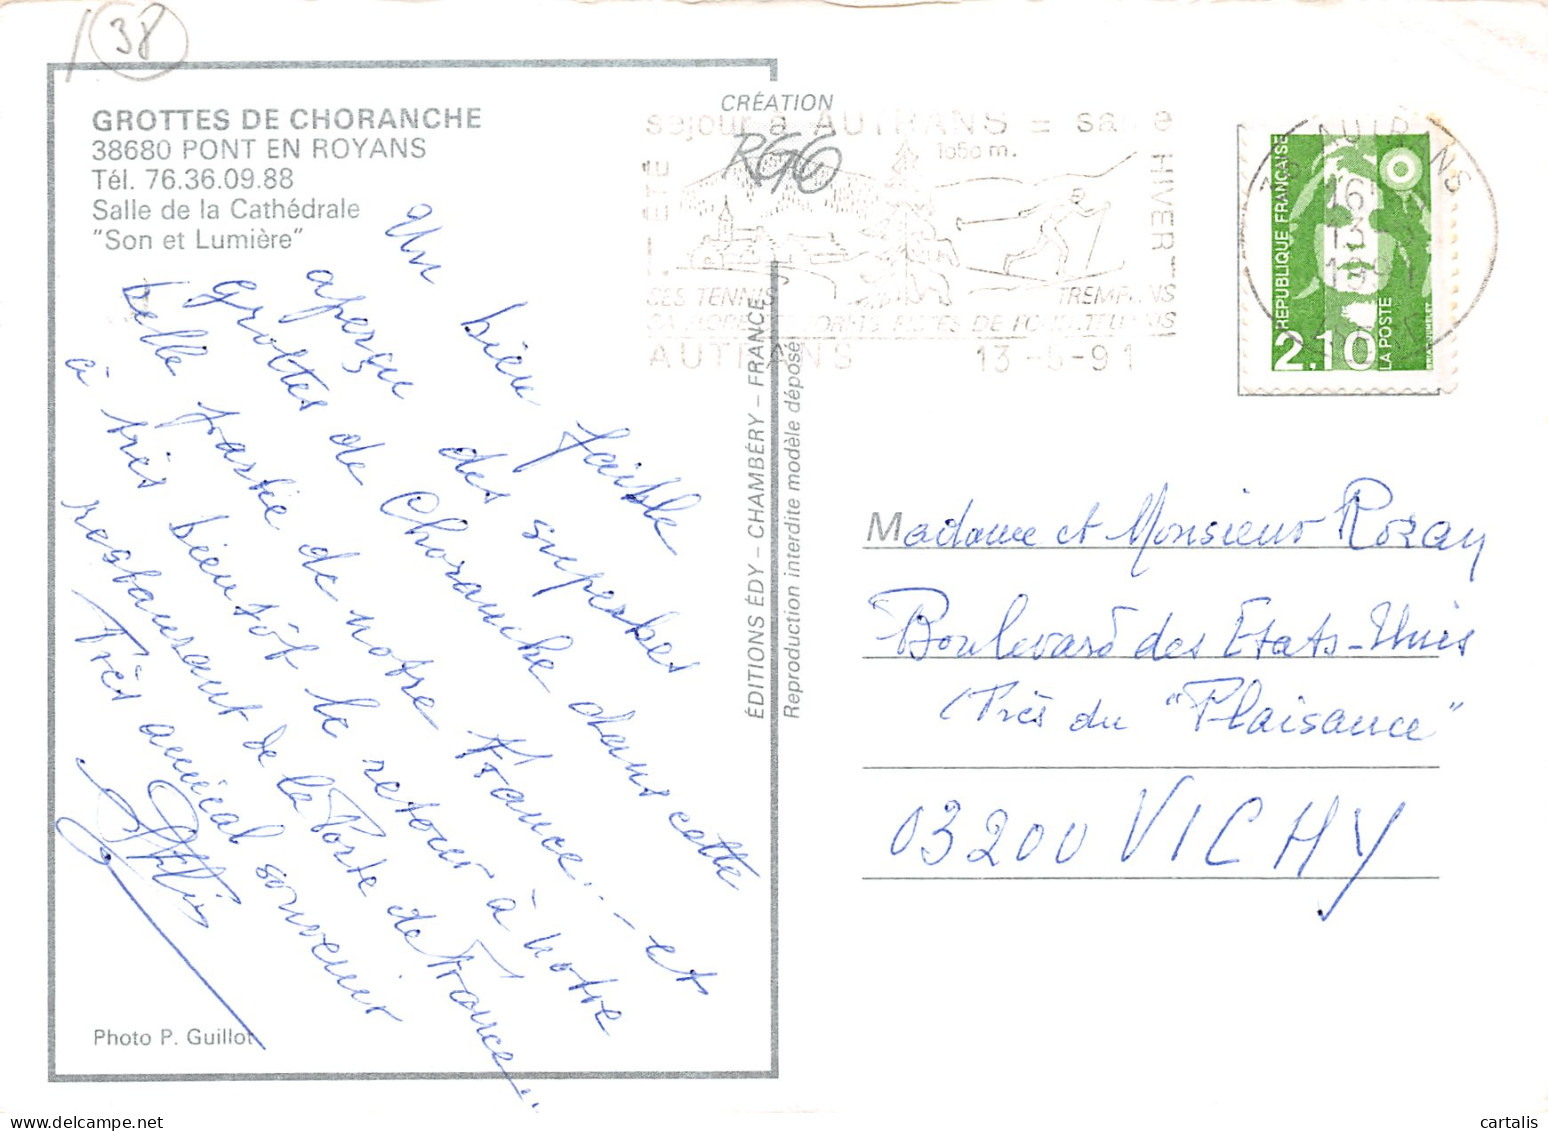 38
GROTTES DE CHORANCHE
38680 PONT EN ROYANS
Tél. 76.36.09.88
Salle de la Cathédrale
"Son et Lumière"
Un bien faible
aperçu des superbes
grottes de Choranche dans cette
belle partie de notre France... et
à très bientôt le retour à notre
restaurant de la Porte de France...
Très amical souvenir
Photo P. Guillot
CRÉATION
ÉDITIONS ÉDY - CHAMBÉRY - FRANCE
Reproduction interdite modèle déposé
séjour à AUTRANS = santé
ÉTÉ
HIVER
1050 m.
SES TENNIS
TREMPLINS
AUTRANS 13-5-91
38 AUTRANS
16
13-5
1991
RÉPUBLIQUE FRANÇAISE
2,10
LA POSTE
Madame et Monsieur Rozay
Boulevard des Etats-Unis
(Près du "Plaisance"
03200 VICHY
cartalis